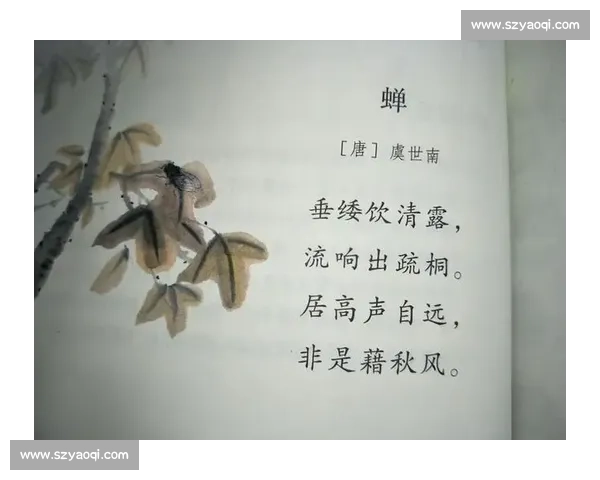 www.szyaoqi.com
蝉
[唐] 虞世南
垂緌饮清露，
流响出疏桐。
居高声自远，
非是藉秋风。
www.szyaoqi.com